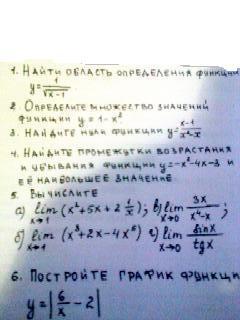 1. Найти область определения функции
y = 1/√(x-1)
2. Определите множество значений
функции y = 1 - x²
3. Найдите нули функции y = (x-1)/(x²-x)
4. Найдите промежутки возрастания
и убывания функции y = -x² - 4x - 3 и
её наибольшее значение.
5. Вычислите
а) lim x→1 (x² + 5x + 2 1/x); в) lim x→0 3x/(x⁴-x);
б) lim x→1 (x³ + 2x - 4x⁶) г) lim x→0 sinx/tgx
6. Постройте график функци
y = |6/x - 2|